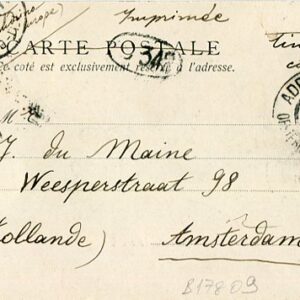 Imprimée
CARTE POSTALE
ce coté est exclusivement réservé à l'adresse.
34
J. du Maine
Weesperstraat 98
Hollande)
Amsterdam
B17809